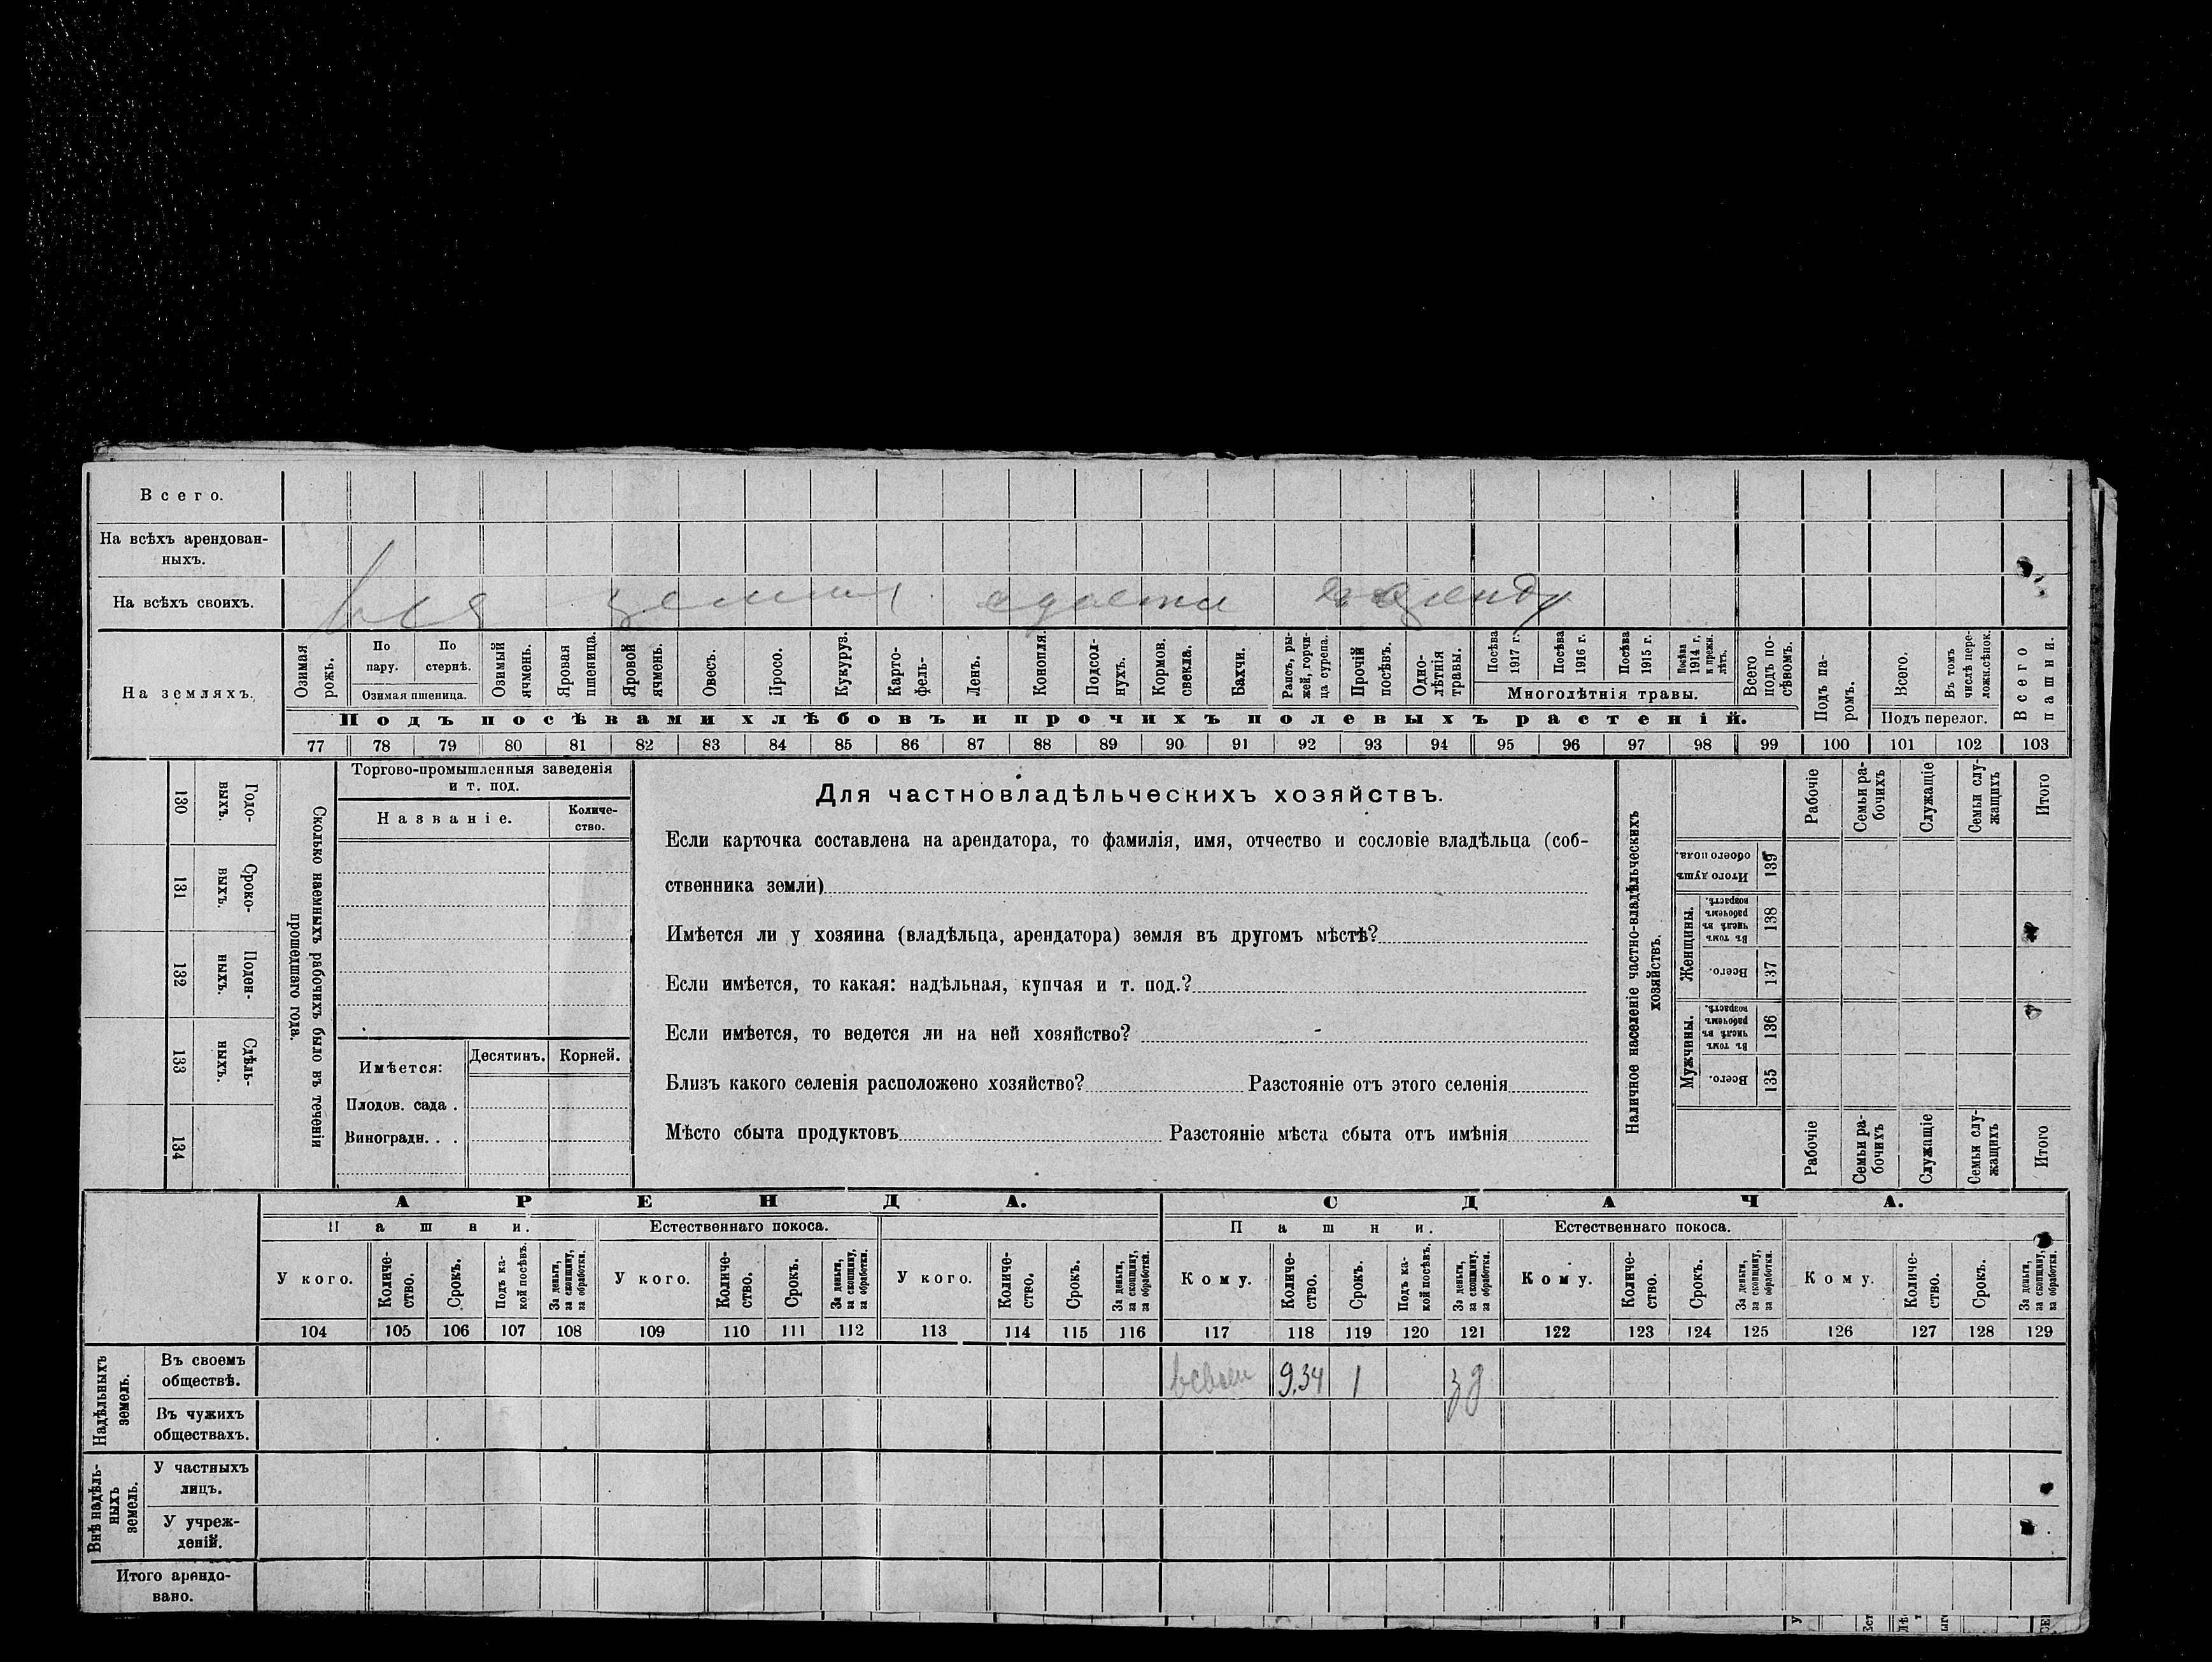 Всего.
На всѣхъ арендован-
ныхъ.
На всѣхъ своихъ.
вся земля сдаетса въ аренду
На земляхъ.
Озимая рожь.
По пару.
По стернѣ.
Озимая пшеница.
Озимый ячмень.
Яровая пшеница.
Яровой ячмень.
Овесъ.
Просо.
Кукуруз.
Карто-
фель-
Ленъ.
Конопля.
Подсол-
нухъ.
Кормов.
свекла.
Бахчи.
Рапсъ, ры-
жей, горчи-
ца сурепа.
Прочій
посѣвъ.
Одно-
лѣтнія
травы.
Посѣва
1917 г.
Посѣва
1916 г.
Посѣва
1915 г.
Посѣва
1914 г.
и прежн.
лѣтъ.
Многолѣтнія травы.
Всего
подъ по-
сѣвомъ.
Подъ па-
ромъ.
Всего.
Въ томъ
числѣ пере-
ложн.сѣнок.
Подъ перелог.
Всего
пашни.
Подъ посѣвами хлѣбовъ и прочихъ полевыхъ растеній.
77 78 79 80 81 82 83 84 85 86 87 88 89 90 91 92 93 94 95 96 97 98 99 100 101 102 103
130
Годо-
выхъ.
131
Сроко-
выхъ.
132
Поден-
ныхъ.
133
Сдѣль-
ныхъ.
134
Сколько наемныхъ рабочихъ было въ теченіи
прошедшаго года.
Торгово-промышленныя заведенія
и т. под.
Названіе.
Количе-
ство.
Имѣется:
Десятинъ.
Корней.
Плодов. сада .
Виноградн. . .
Для частновладѣльческихъ хозяйствъ.
Если карточка составлена на арендатора, то фамилія, имя, отчество и сословіе владѣльца (соб-
ственника земли)
Имѣется ли у хозяина (владѣльца, арендатора) земля въ другомъ мѣстѣ?
Если имѣется, то какая: надѣльная, купчая и т. под.?
Если имѣется, то ведется ли на ней хозяйство?
Близъ какого селенія расположено хозяйство? Разстояніе отъ этого селенія
Мѣсто сбыта продуктовъ Разстояніе мѣста сбыта отъ имѣнія
Наличное населеніе частно-владѣльческихъ
хозяйствъ.
Рабочіе
Семьи ра-
бочихъ
Служащіе
Семьи слу-
жащихъ
Итого
Итого душъ
обоего пола.
139
Женщины.
Въ томъ
числѣ въ
рабочемъ
возрастѣ.
138
Всего.
137
Мужчины.
Въ томъ
числѣ въ
рабочемъ
возрастѣ.
136
Всего.
135
Рабочіе
Семьи ра-
бочихъ
Служащіе
Семьи слу-
жащихъ
Итого
АРЕНДА.
СДАЧА.
Пашни.
Естественнаго покоса.
Пашни.
Естественнаго покоса.
У кого.
Количе-
ство.
Срокъ.
Подъ ка-
кой посѣвъ.
За деньги,
за скопщину,
за обработки.
У кого.
Количе-
ство.
Срокъ.
За деньги,
за скопщину,
за обработки.
У кого.
Количе-
ство.
Срокъ.
За деньги,
за скопщину,
за обработки.
Кому.
Количе-
ство.
Срокъ.
Подъ ка-
кой посѣвъ.
За деньги,
за скопщину,
за обработки.
Кому.
Количе-
ство.
Срокъ.
За деньги,
за скопщину,
за обработки.
Кому.
Количе-
ство.
Срокъ.
За деньги,
за скопщину,
за обработки.
104 105 106 107 108 109 110 111 112 113 114 115 116 117 118 119 120 121 122 123 124 125 126 127 128 129
Надѣльныхъ
земель.
Въ своемъ
обществѣ.
9,34 1
Въ чужихъ
обществахъ.
Внѣ надѣль-
ныхъ
земель.
У частныхъ
лицъ.
У учреж-
деній.
Итого арендо-
вано.